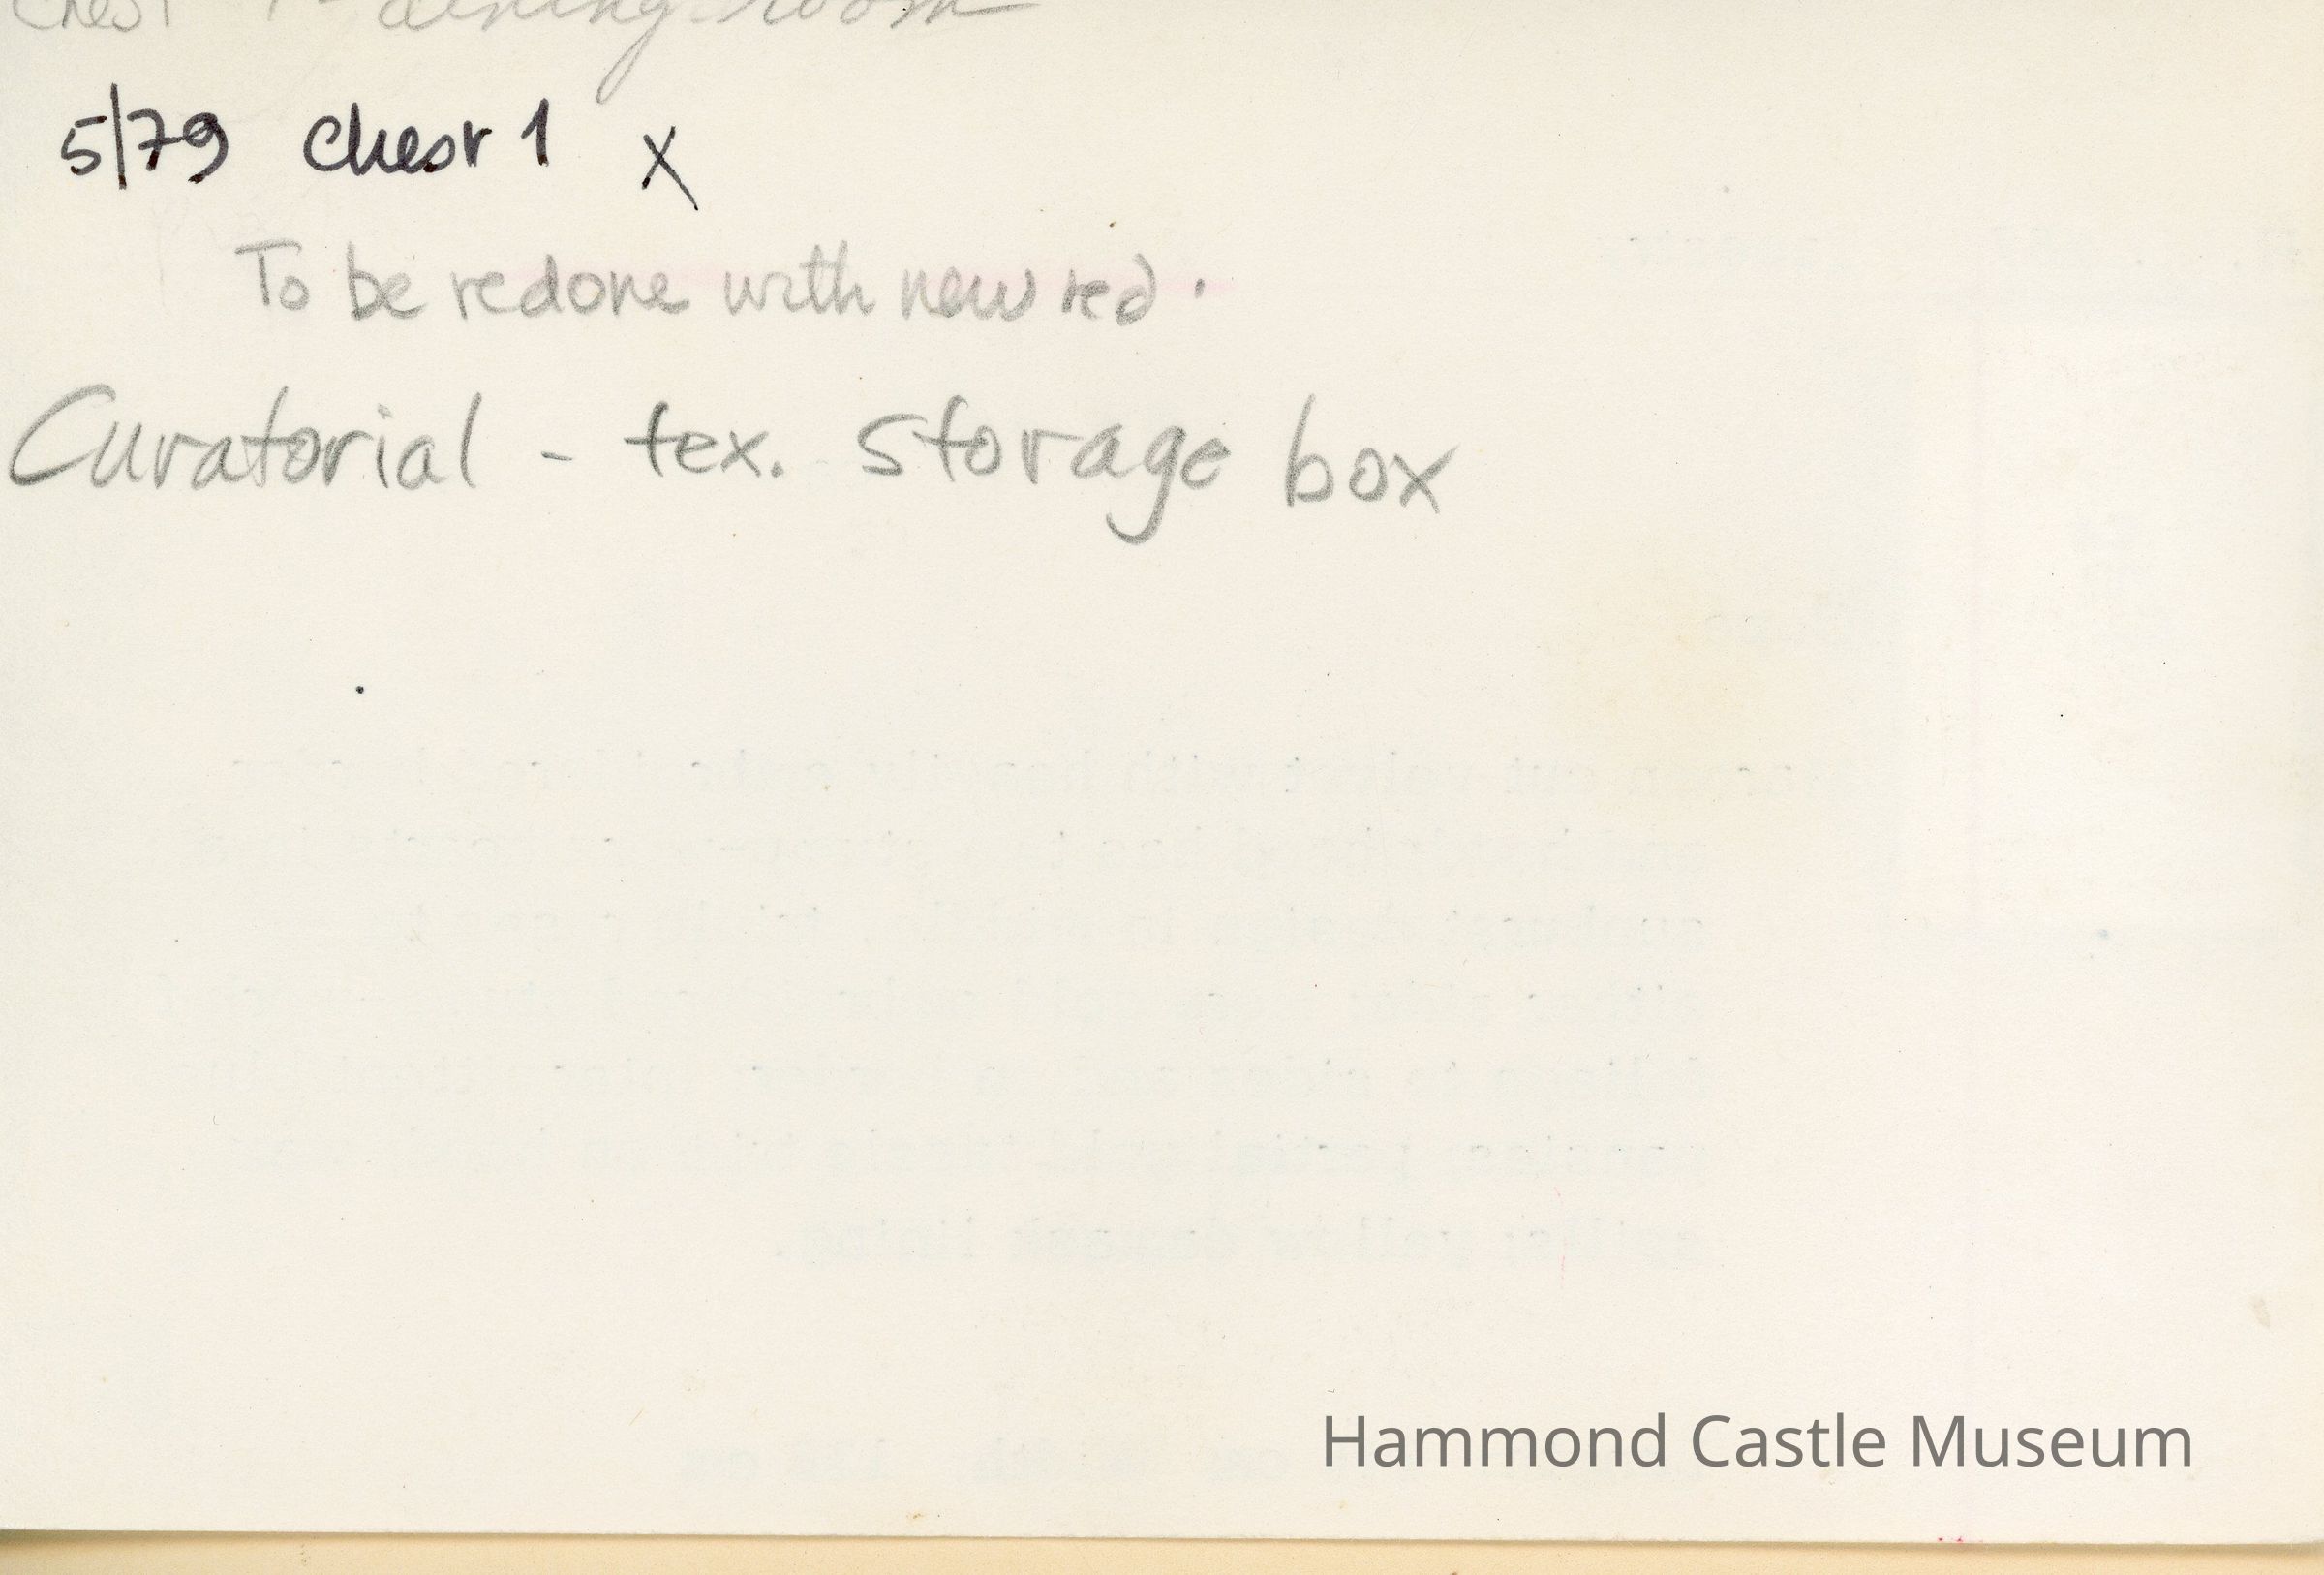 Chest 1 - dining room
5/79 Chest 1 X
To be redone with new red.
Curatorial - tex. Storage box
Hammond Castle Museum